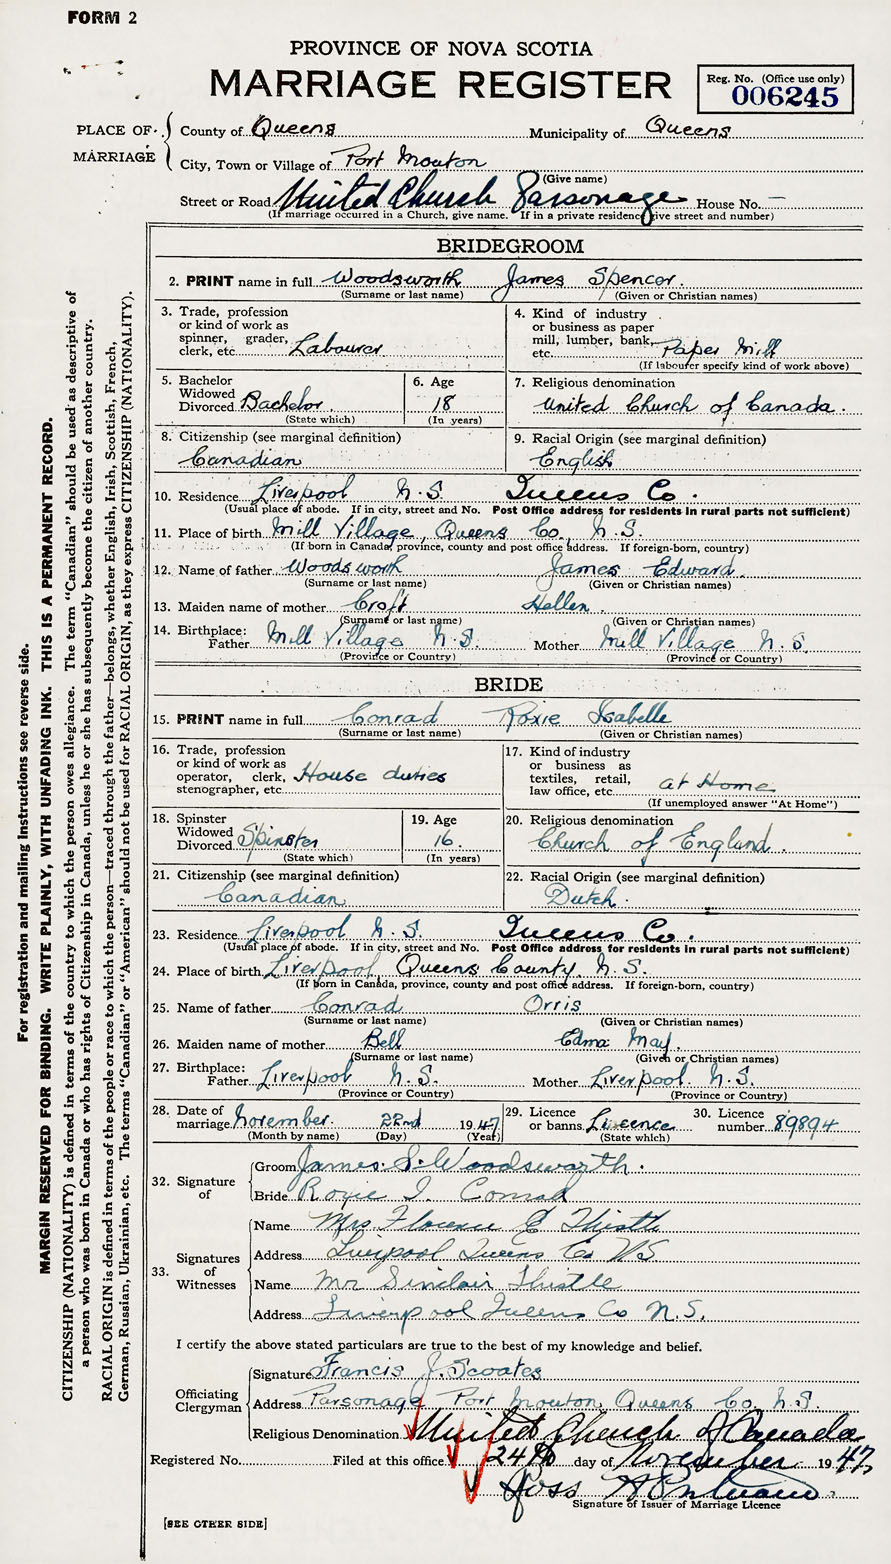 FORM 2
PROVINCE OF NOVA SCOTIA
MARRIAGE REGISTER
Reg. No. (Office use only)
006245
PLACE OF MARRIAGE
County of Queens Municipality of Queens
City, Town or Village of Port Mouton
(Give name)
Street or Road United Church Parsonage House No. —
(If marriage occurred in a Church, give name. If in a private residence give street and number)
BRIDEGROOM
2. PRINT name in full Woodsworth James Spencer.
(Surname or last name) (Given or Christian names)
3. Trade, profession
or kind of work as
spinner, grader,
clerk, etc. Labourer
4. Kind of industry
or business as paper
mill, lumber, bank,
etc. Paper Mill
(If labourer specify kind of work above)
5. Bachelor
Widowed
Divorced Bachelor
(State which)
6. Age
18
(In years)
7. Religious denomination
United Church of Canada.
8. Citizenship (see marginal definition)
Canadian
9. Racial Origin (see marginal definition)
English
10. Residence Liverpool N.S. Queens Co.
(Usual place of abode. If in city, street and No. Post Office address for residents in rural parts not sufficient)
11. Place of birth Mill Village, Queens Co., N.S.
(If born in Canada, province, county and post office address. If foreign-born, country)
12. Name of father Woodsworth James Edward.
(Surname or last name) (Given or Christian names)
13. Maiden name of mother Croft Hellen.
(Surname or last name) (Given or Christian names)
14. Birthplace:
Father Mill Village N.S. Mother Mill Village N.S.
(Province or Country) (Province or Country)
BRIDE
15. PRINT name in full Conrad Roxie Isabelle
(Surname or last name) (Given or Christian names)
16. Trade, profession
or kind of work as
operator, clerk,
stenographer, etc. House duties
17. Kind of industry
or business as
textiles, retail,
law office, etc. at Home
(If unemployed answer "At Home")
18. Spinster
Widowed
Divorced Spinster
(State which)
19. Age
16.
(In years)
20. Religious denomination
Church of England.
21. Citizenship (see marginal definition)
Canadian
22. Racial Origin (see marginal definition)
Dutch.
23. Residence Liverpool N.S. Queens Co.
(Usual place of abode. If in city, street and No. Post Office address for residents in rural parts not sufficient)
24. Place of birth Liverpool, Queens County, N.S.
(If born in Canada, province, county and post office address. If foreign-born, country)
25. Name of father Conrad Orris
(Surname or last name) (Given or Christian names)
26. Maiden name of mother Bell Edna May.
(Surname or last name) (Given or Christian names)
27. Birthplace:
Father Liverpool N.S. Mother Liverpool. N.S.
(Province or Country) (Province or Country)
28. Date of
marriage November. 22nd 1947
(Month by name) (Day) (Year)
29. Licence
or banns. Licence
(State which)
30. Licence
number 89894
32. Signature
of
Groom James S. Woodsworth.
Bride Roxie I. Conrad
33. Signatures
of
Witnesses
Name Mrs. Florence E Thistle
Address Liverpool Queens Co N.S
Name Mr Sinclair Thistle
Address Liverpool Queens Co N.S.
I certify the above stated particulars are true to the best of my knowledge and belief.
Officiating
Clergyman
Signature Francis J. Scoates
Address Parsonage Port Mouton, Queens Co. N.S.
Religious Denomination United Church of Canada
Registered No. Filed at this office 24th day of November 1947
Ross
Signature of Issuer of Marriage Licence
[SEE OTHER SIDE]
For registration and mailing instructions see reverse side.
MARGIN RESERVED FOR BINDING. WRITE PLAINLY, WITH UNFADING INK. THIS IS A PERMANENT RECORD.
CITIZENSHIP (NATIONALITY) is defined in terms of the country to which the person owes allegiance. The term "Canadian" should be used as descriptive of
a person who was born in Canada or who has rights of Citizenship in Canada, unless he or she has subsequently become the citizen of another country.
RACIAL ORIGIN is defined in terms of the people or race to which the person—traced through the father—belongs, whether English, Irish, Scottish, French,
German, Russian, Ukrainian, etc. The terms "Canadian" or "American" should not be used for RACIAL ORIGIN, as they express CITIZENSHIP (NATIONALITY).